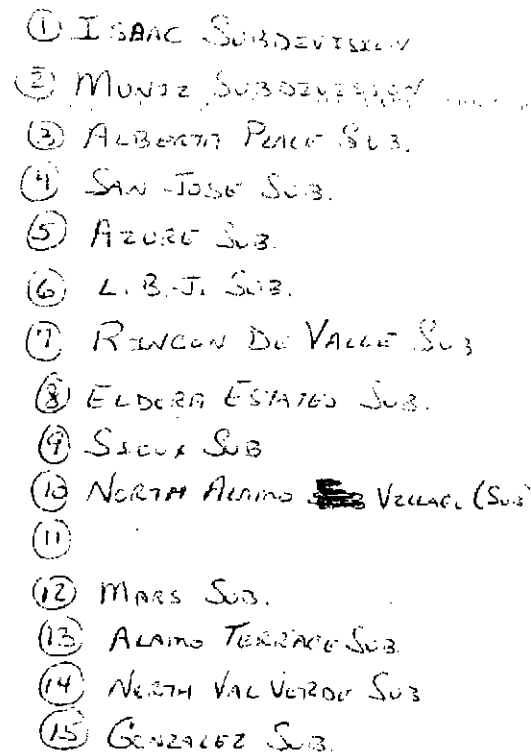 ① ISAAC SUBDIVISION
② MUNIZ SUBDIVISION
③ ALBERTA PLACE SUB.
④ SAN JOSE SUB.
⑤ AZURE SUB.
⑥ L.B.J. SUB.
⑦ RINCON DE VALLE SUB
⑧ ELDORA ESTATES SUB.
⑨ SIOUX SUB
⑩ NORTH ALAMO VILLAGE (SUB)
⑪
⑫ MARS SUB.
⑬ ALAMO TERRACE SUB.
⑭ NORTH VAL VERDE SUB
⑮ GONZALEZ SUB.